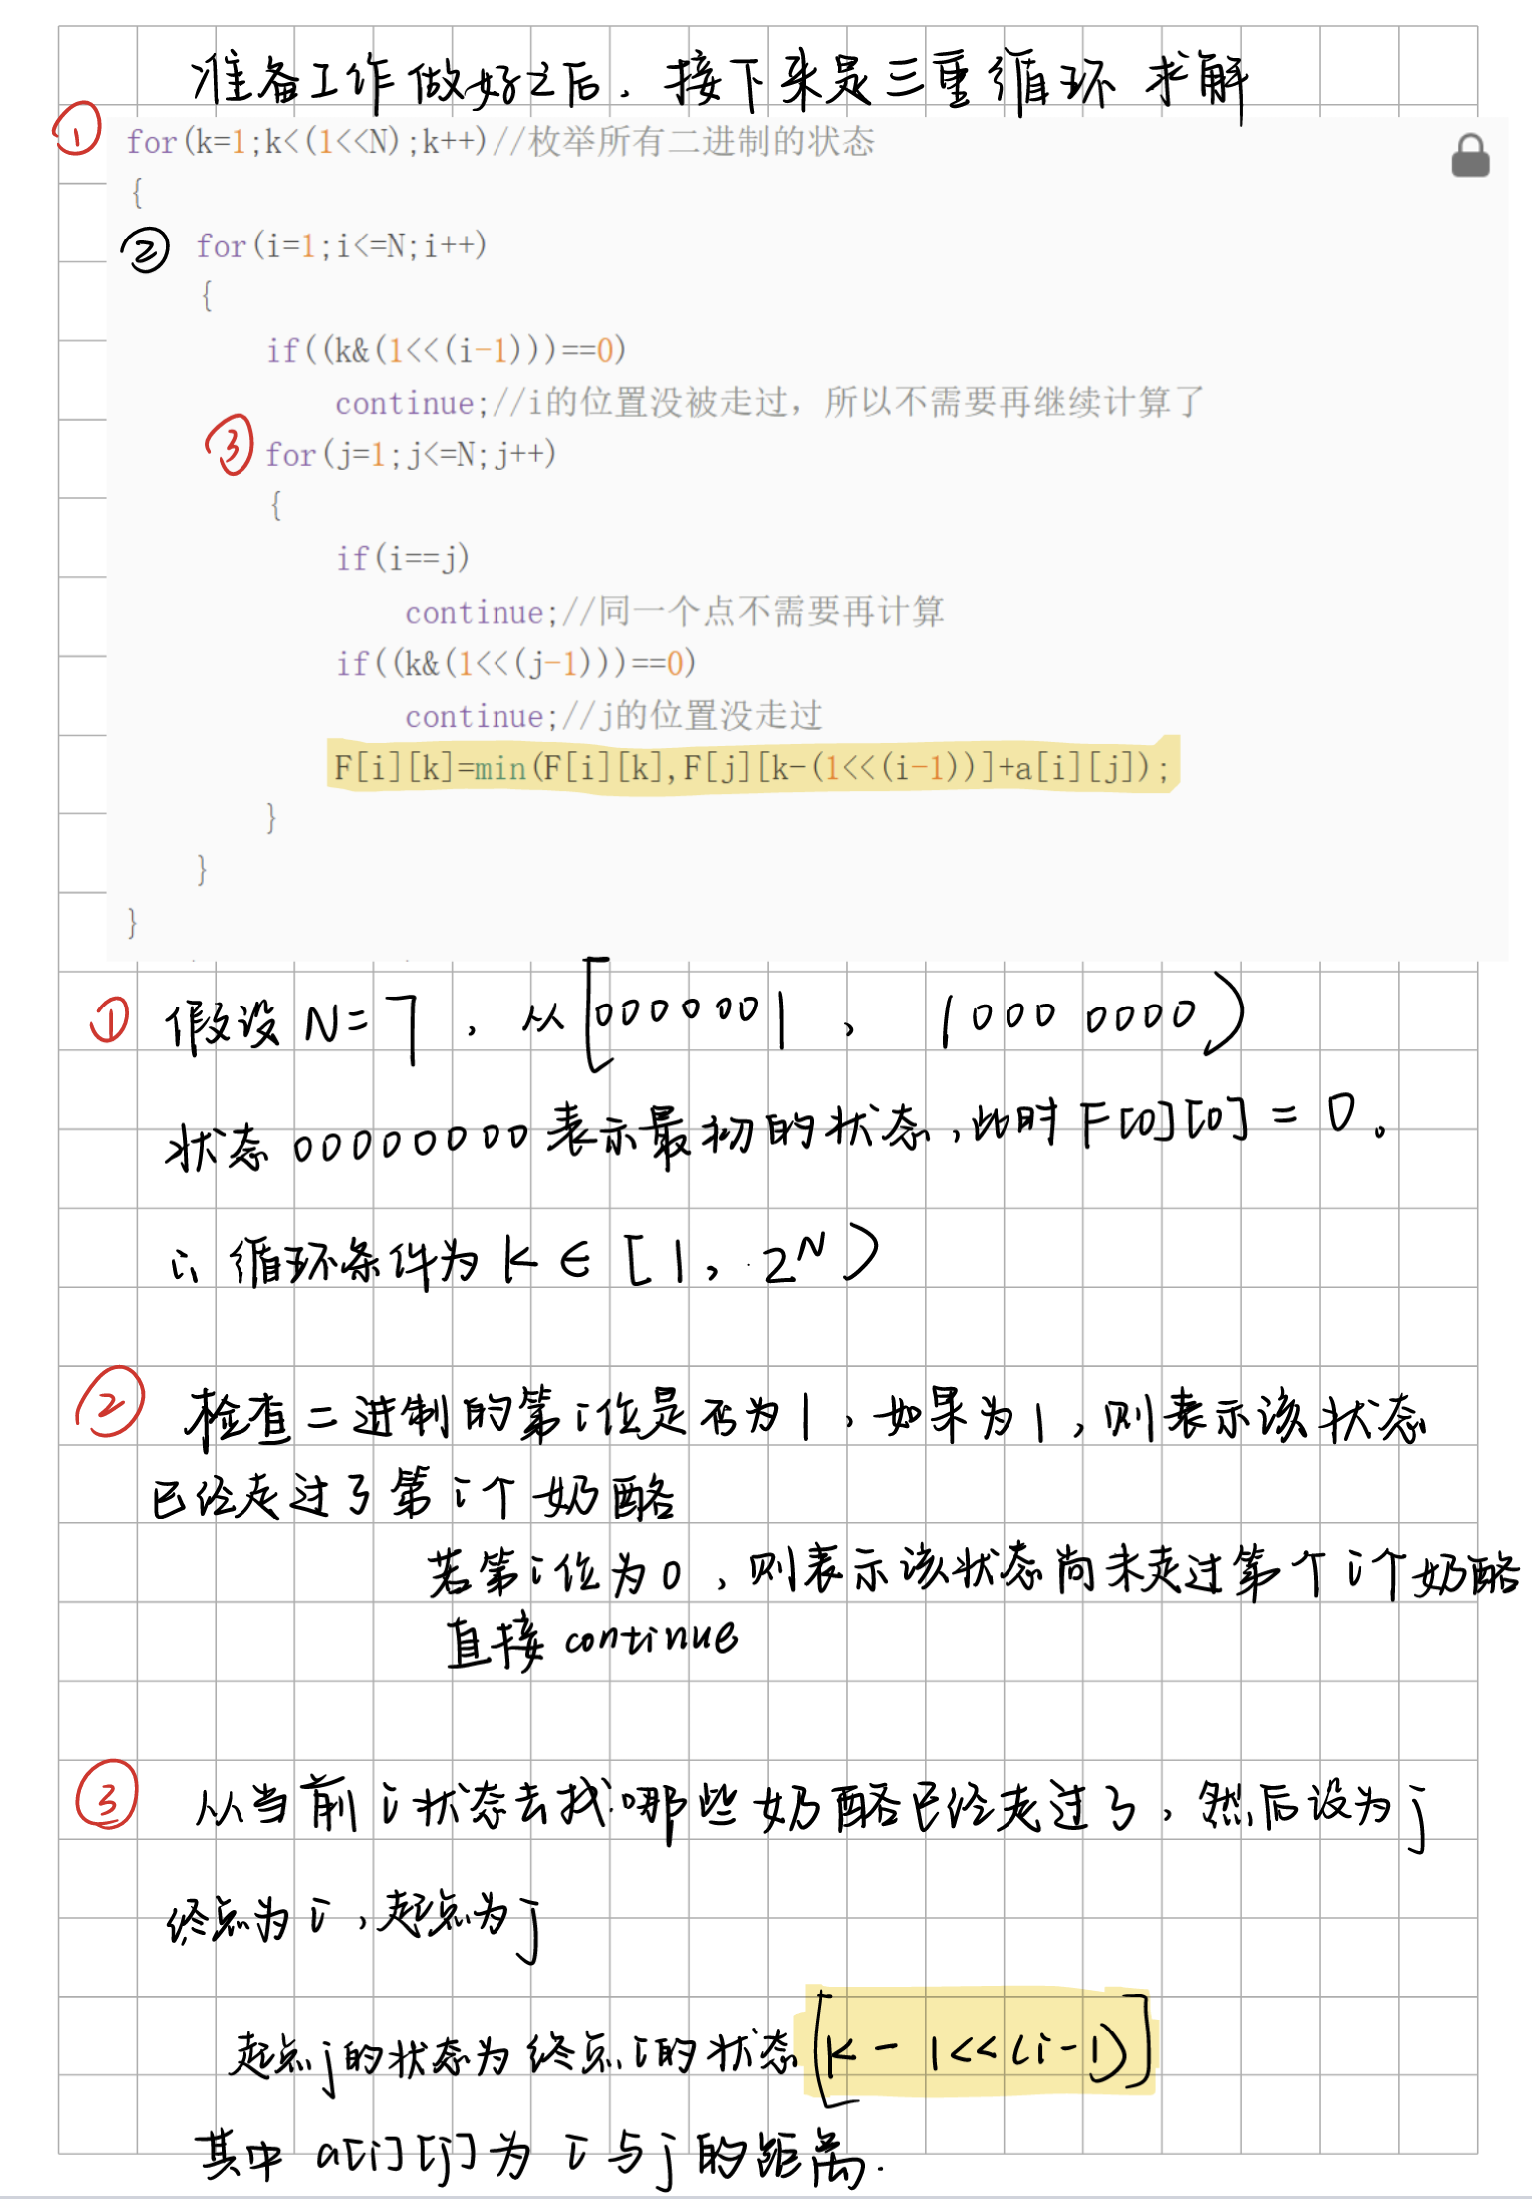 准备工作做好之后，接下来是三重循环求解
① for(k=1;k<(1<<N);k++)//枚举所有二进制的状态
{
② for(i=1;i<=N;i++)
{
if((k&(1<<(i-1)))==0)
continue;//i的位置没被走过，所以不需要再继续计算了
③ for(j=1;j<=N;j++)
{
if(i==j)
continue;//同一个点不需要再计算
if((k&(1<<(j-1)))==0)
continue;//j的位置没走过
F[i][k]=min(F[i][k],F[j][k-(1<<(i-1))]+a[i][j]);
}
}
}
① 假设N=7，从[0000001，10000000)
状态00000000表示最初的状态，此时F[0][0]=0。
∴循环条件为k∈[1，2^N)
② 检查二进制的第i位是否为1，如果为1，则表示该状态
已经走过了第i个奶酪
若第i位为0，则表示该状态尚未走过第个i个奶酪
直接continue
③ 从当前i状态去找哪些奶酪已经走过了，然后设为j
终点为i，起点为j
起点j的状态为终点i的状态[k-1<<(i-1)]
其中a[i][j]为i与j的距离.